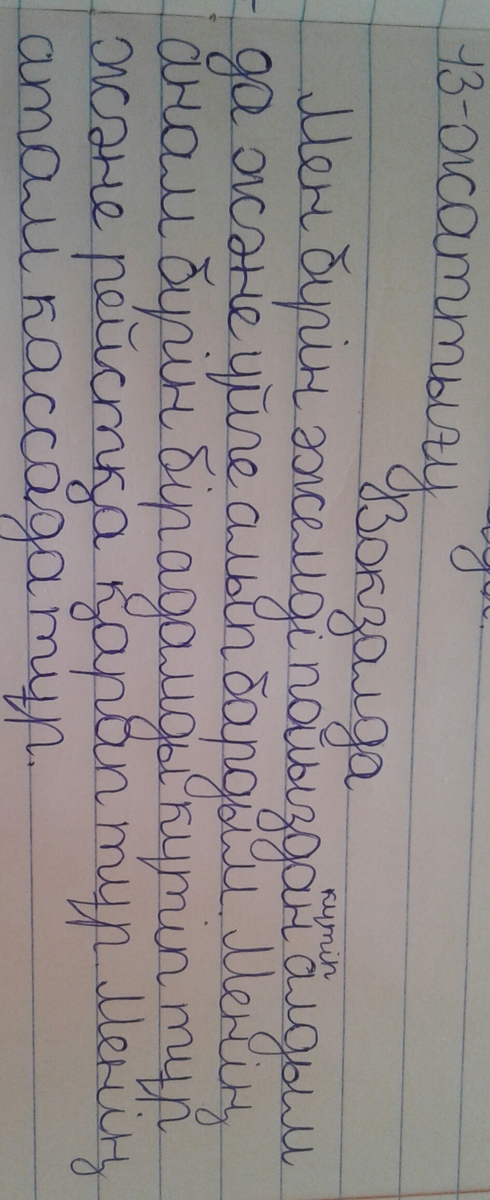 43-жаттығу
Вокзалда
Мен бүгін әжемді пойыздан күтіп алдым
да және үйге алып бардым. Менің
анам бүгін бір адамды күтіп тұр
және рейстқа қарап тұр. Менің
атам кассада тұр.